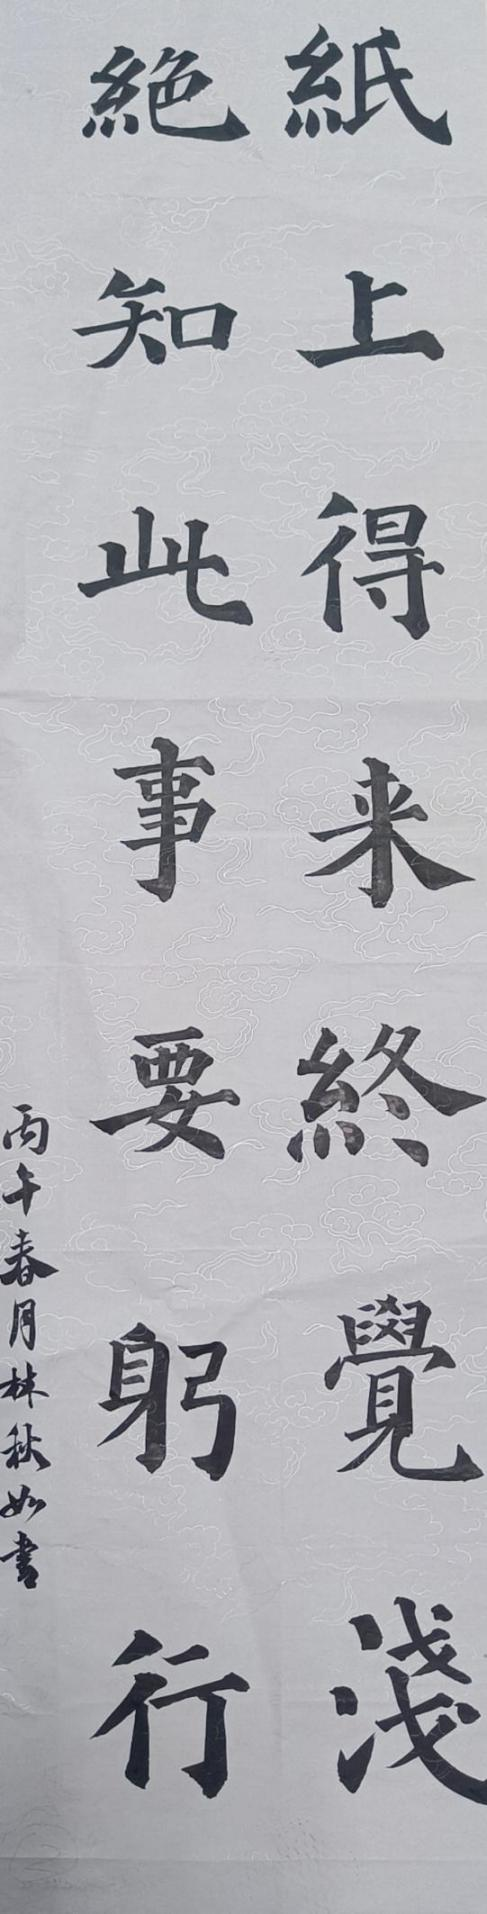 紙上得来終覺淺
絶知此事要躬行
丙午春月林秋如書